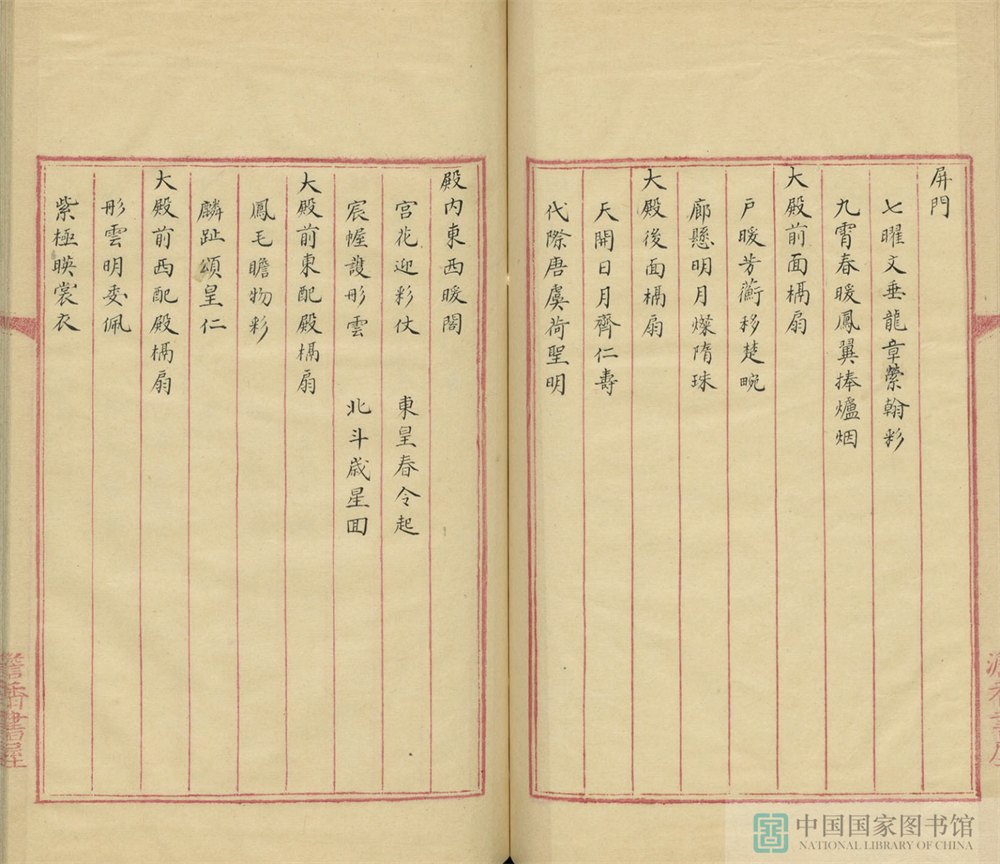 屏門
七曜文垂龍章縈翰彩
九霄春暖鳳翼捧爐烟
大殿前面槅扇
戶暖芳蘅移楚畹
廊懸明月燦隋珠
大殿後面槅扇
天開日月齊仁壽
代際唐虞荷聖明
殿内東西暖閣
宮花迎彩仗　東皇春令起
宸幄護彤雲　北斗歲星回
大殿前東配殿槅扇
鳳毛瞻物彩
麟趾頌皇仁
大殿前西配殿槅扇
彤雲明委佩
紫極暎裳衣
書屋
中国国家图书馆
NATIONAL LIBRARY OF CHINA